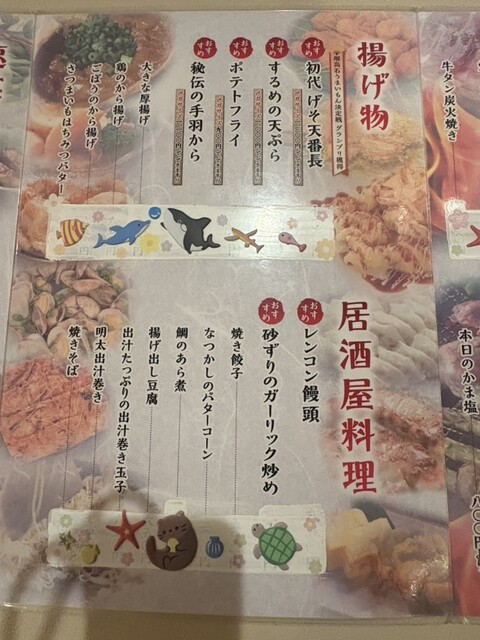 揚げ物
おすすめ
初代 げそ天番長
おすすめ
するめの天ぷら
おすすめ
ポテトフライ
おすすめ
秘伝の手羽から
大きな厚揚げ
鶏のから揚げ
ごぼうのから揚げ
さつまいもはちみつバター
居酒屋料理
おすすめ
レンコン饅頭
おすすめ
砂ずりのガーリック炒め
焼き餃子
なつかしのバターコーン
鯛のあら煮
揚げ出し豆腐
出汁たっぷりの出汁巻き玉子
明太出汁巻き
焼きそば
牛タン炭火焼き
本日のかま塩
八〇〇円